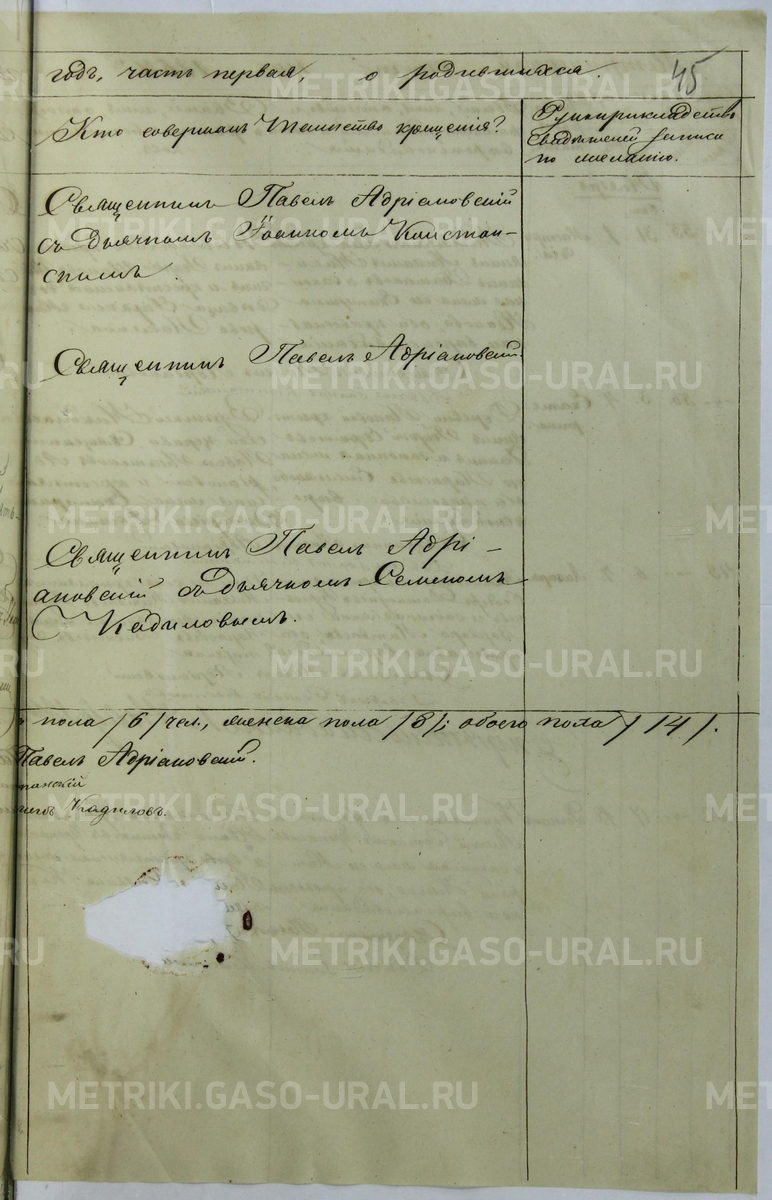 годъ, часть первая, о родившихся. 45
Кто совершалъ Таинство крещенія?
Рукоприкладство
свидѣтелей записи
по желанію.
Священникъ Павелъ Адріановскій
съ Дьячкомъ Іоанномъ Констан-
скимъ.
Священникъ Павелъ Адріановскій.
Священникъ Павелъ Адрі-
ановскій съ Дьячкомъ Семеномъ
Кадиловымъ.
пола /6/ чел., женска пола /8/; обоего пола /14/.
Павелъ Адріановскій.
танскій
Кадиловъ.
METRIKI.GASO-URAL.RU